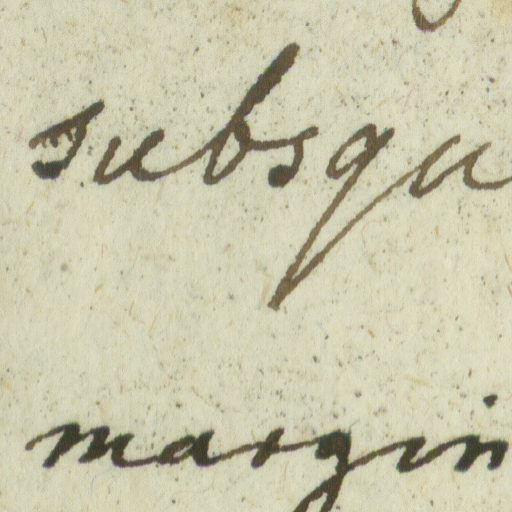 subsqu
margin